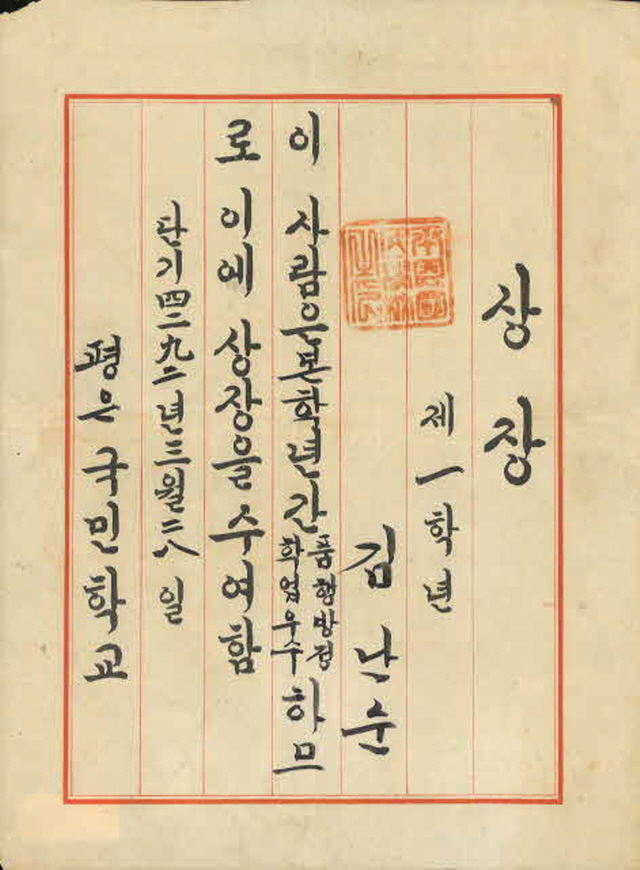 상장
제一학년
김나순
이 사람은본학년간 품행방정 학업우수 하므
로 이에 상장을 수여함
단기四二九二년三월二八일
평은국민학교